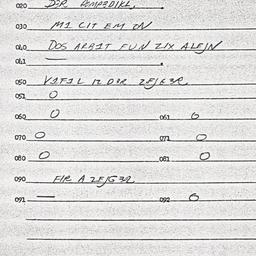 020 DƏR
030 MI CIT EM ON
040 DOS ARBIT FUN ZIX ALEJN
041 —
050 VIFIL IZ DƏR ZEJGƏR
051 O
060 O 061 O
070 O 071 O
080 O 081 O
090 FIR A ZEJGƏR
091 — 092 O